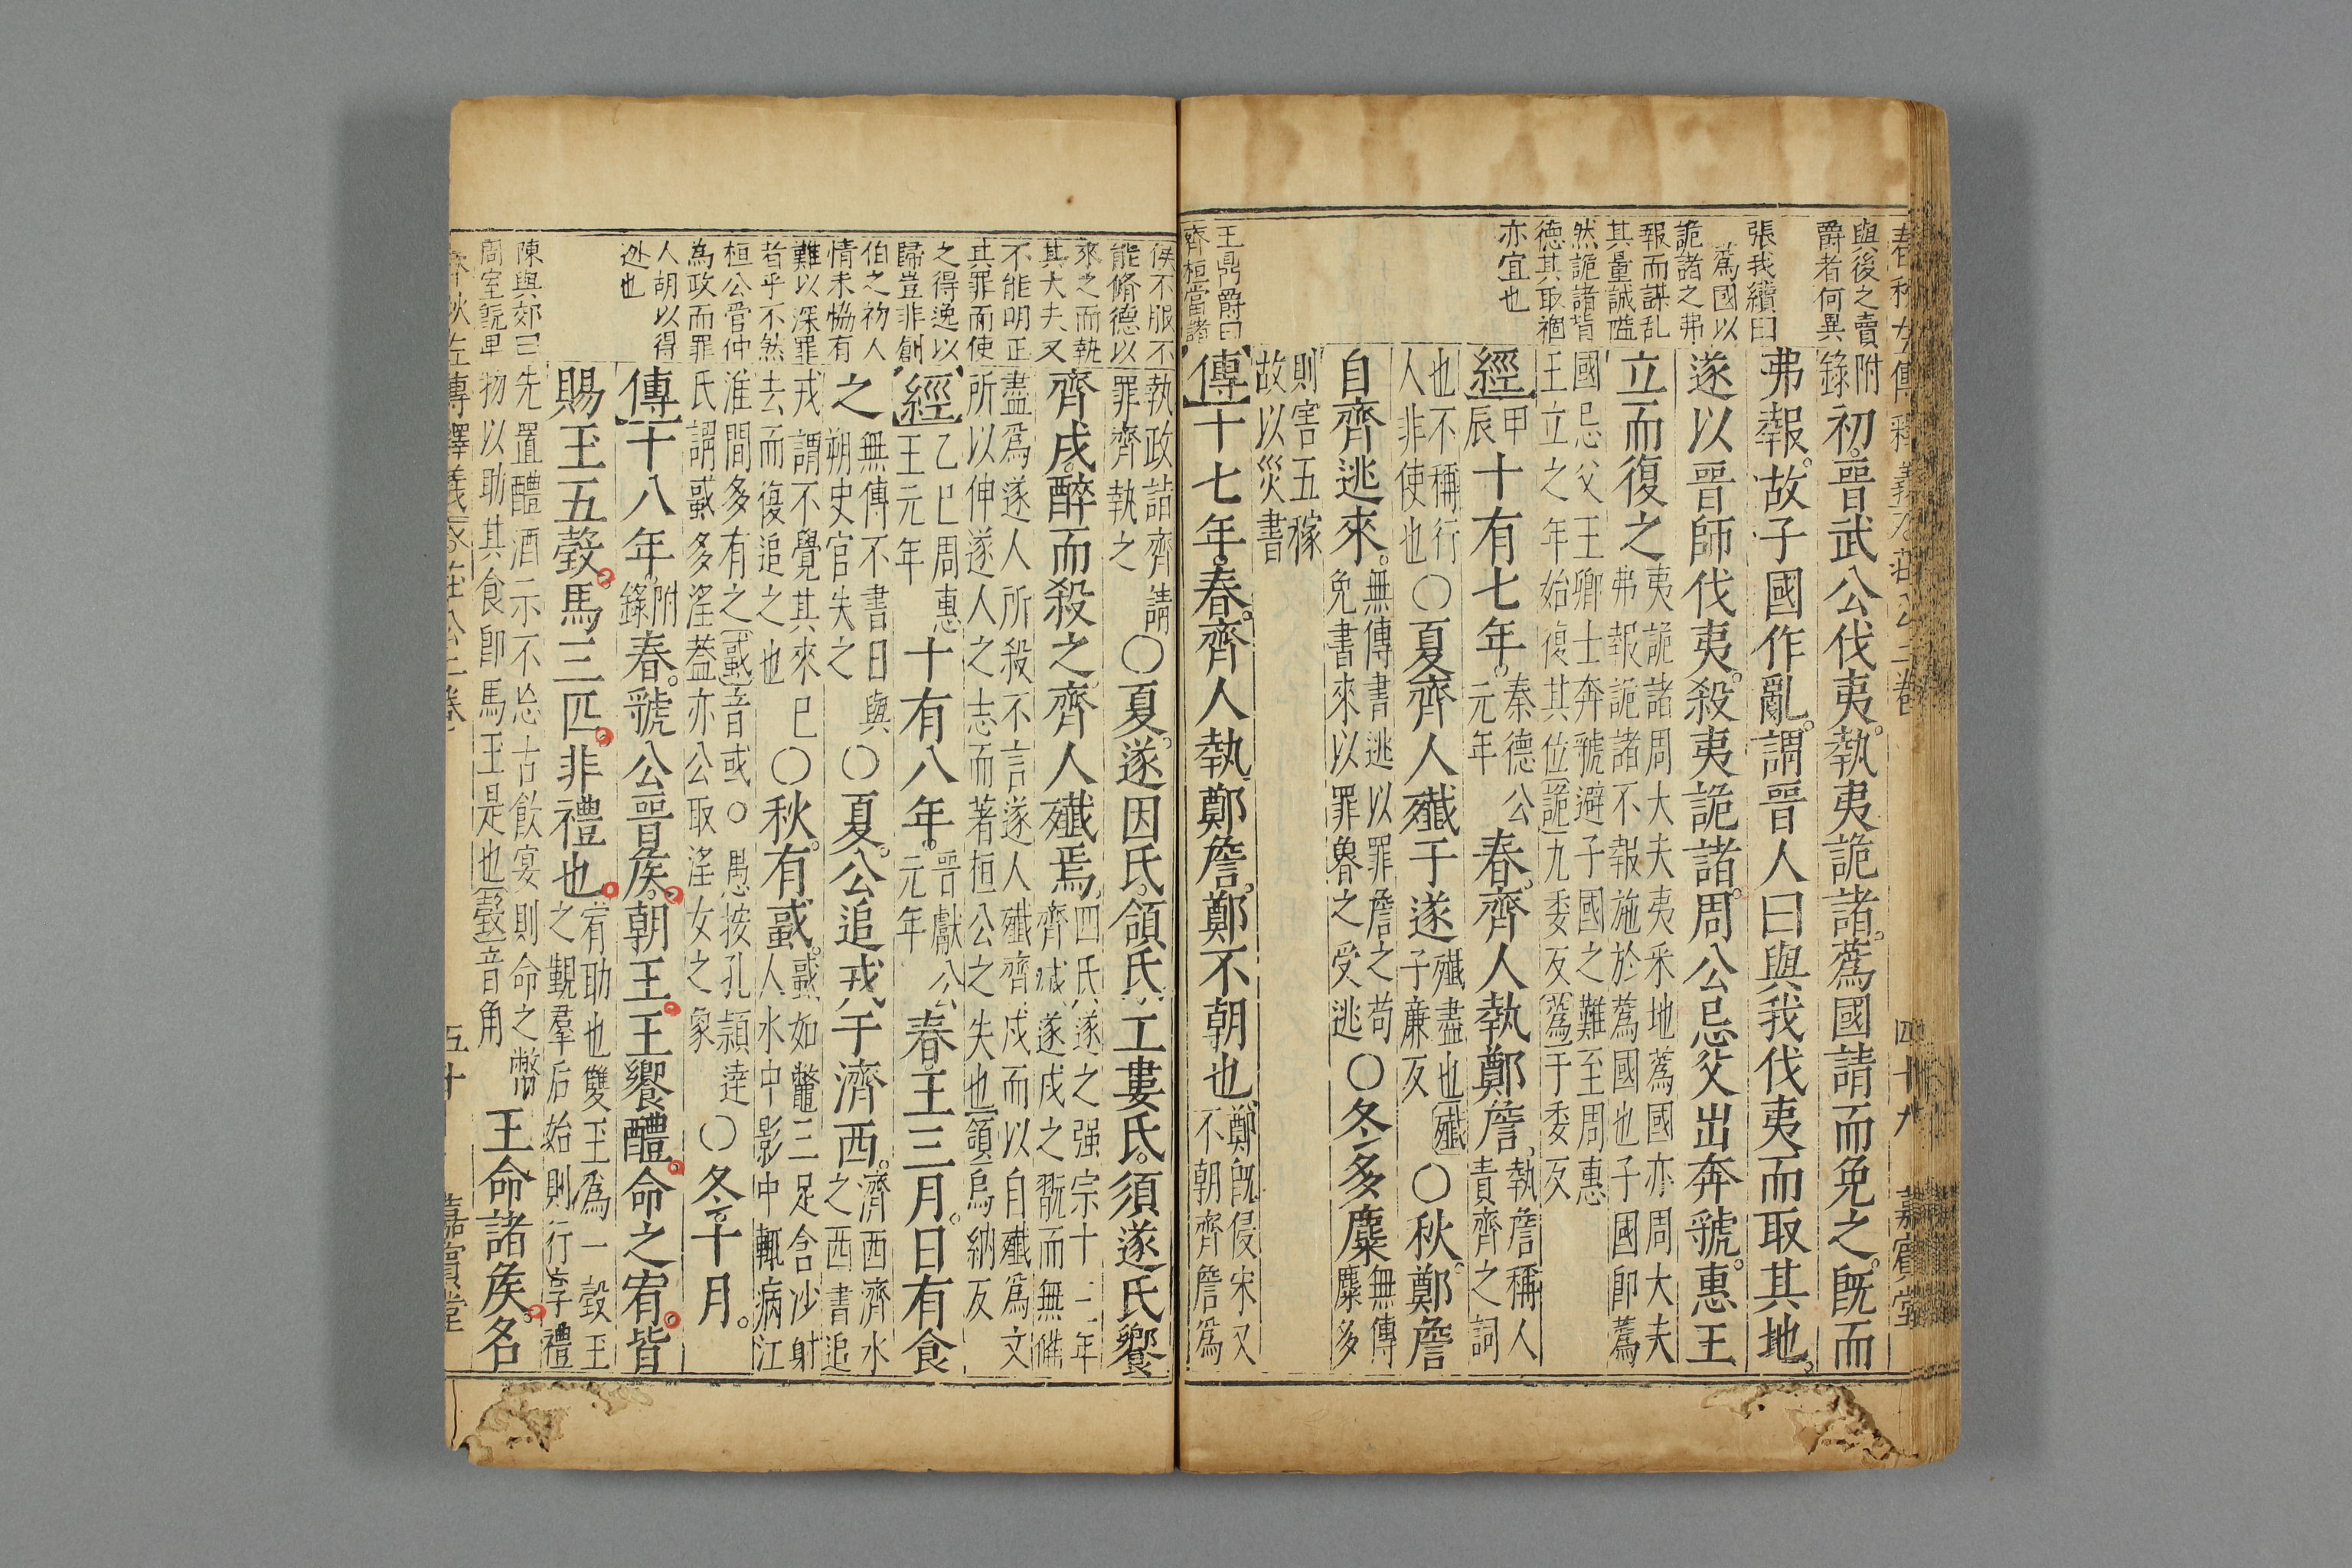 春秋左傳釋義大莊公上三卷 四十九 嘉賓堂
與後之賣
爵者何異
張我續曰
蒍國以
詭諸之弗
報而謀乱
其量誠隘
然詭諸背
德其取禍
亦宜也
王鼎爵曰
齊桓當諸
附錄初晉武公伐夷執夷詭諸蒍國請而免之既而
弗報故子國作亂謂晉人曰與我伐夷而取其地
遂以晉師伐夷殺夷詭諸周公忌父出奔虢惠王
立而復之夷詭諸周大夫夷采地蒍國亦周大夫
弗報詭諸不報施於蒍國也子國即蒍
國忌父王卿士奔虢避子國之難至周惠
王立之年始復其位詭九委反蒍于委反
經甲辰十有七年秦德公元年春齊人執鄭詹執詹稱人
責齊之詞
也不稱行
人非使也〇夏齊人殲于遂殲盡也殲
子廉反〇秋鄭詹
自齊逃來無傳書逃以罪詹之苟
免書來以罪魯之受逃〇冬多麋無傳
麋多
則害五稼
故以災書
傳十七年春齊人執鄭詹鄭不朝也鄭既侵宋又
不朝齊詹為
侯不服不
能脩德以
來之而執
其大夫又
不能明正
其罪而使
之得逸以
歸豈非創
伯之初人
情未恊有
難以深罪
者乎不然
桓公管仲
為政而罪
人胡以得
迯也
陳與郊曰
周室旣卑
執政詣齊請
罪齊執之〇夏遂因氏頜氏工婁氏須遂氏饗
齊戍醉而殺之齊人殲焉四氏遂之强宗十三年
齊滅遂戍之翫而無備
盡爲遂人所殺不言遂人殲齊戍而以自殲爲文
所以伸遂人之志而著桓公之失也頜烏納反
經乙巳周惠
王元年十有八年晉獻公
元年春王三月日有食
之無傳不書日與
朔史官失之〇夏公追戎于濟西濟西濟水
之西書追
戎謂不覺其來已
去而復追之也〇秋有蜮蜮如鼈三足含沙射
人水中影中輒病江
淮間多有之蜮音或〇愚按孔頴達
氏謂蜮多淫葢亦公取淫女之象〇冬十月
傳十八年附錄春虢公晉矦朝王王饗醴命之宥皆
賜玉五瑴馬三匹非禮也宥助也雙玉爲一瑴王
之覲羣后始則行享禮
先置醴酒示不忘古飲宴則命之幣
物以助其食卽馬玉是也瑴音角王命諸矦名
春秋左傳釋義大莊公上卷 五十 嘉賓堂